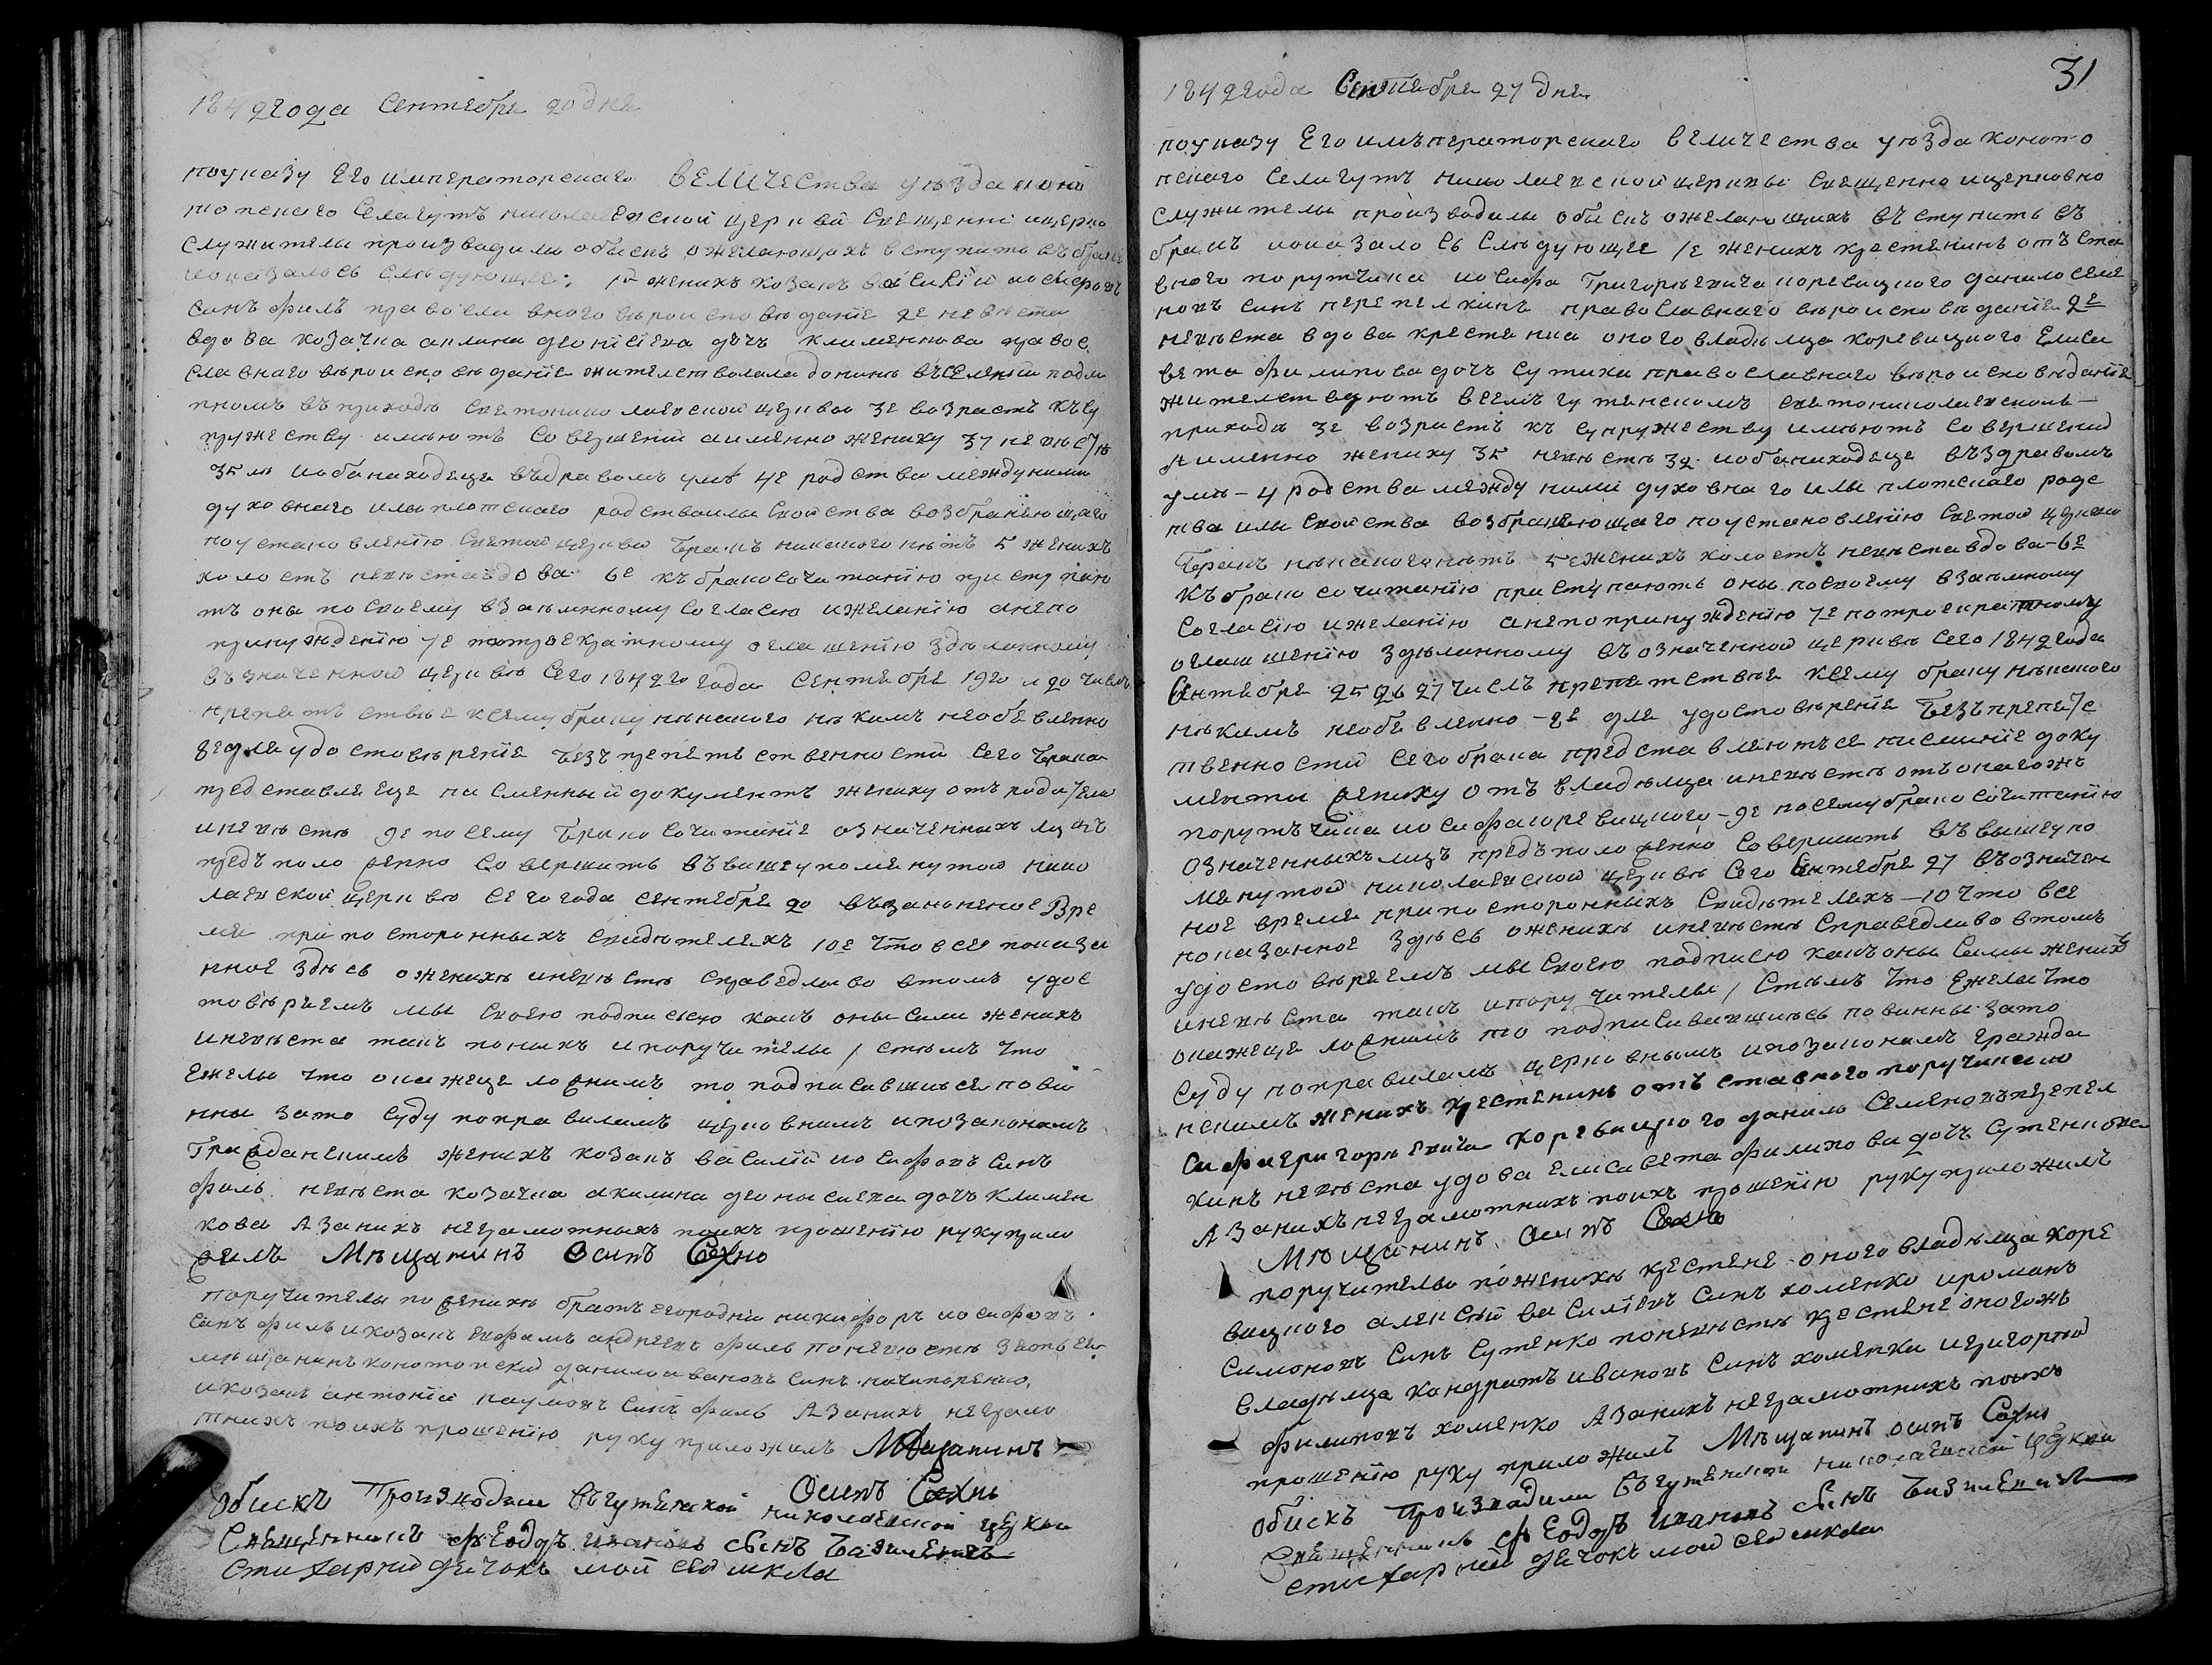 1842 года Сентебре 20 дне
поуказу Его императорскаго Величества уезда коно
топскаго Селагутъ николаевской церкви Свещенно ицерко
служители производили обыскъ ожелающихъ вступить въ бракъ
ипоказалось следующее: 1й женихъ козакъ Василий иосифовъ
синъ филь православного вероисповедание 2е невеста
вдова козачка акилина дионисиева дочь клименкова правос
славнаго вероисповедание жителствовала донинъ въ подли
пномъ въприходе Светониколаевской церкви 3е возрастъ къ су
пружеству имеютъ Совершений аименно жениху 37 невесте
35 ли иобанаходеце въздравомъ уме 4е родства междуними
духовнаго или плотскаго родстваили Свойства возбранеющаго
поустановлению Светой церкви бракъ никакого нетъ 5 женихъ
холостъ невеставдова 6е къ бракосочитанию приступаю
тъ оны посвоему взаемнному Согласию ижеланию анепо
принуждению 7е потроекратному оглашению зделанному
възначенной церкве Сего 1842го года Сентебре 19го и 20 числъ
препетствие ксему браку некакого некимъ необевленно
8е для удостоверение безъпрепетственности Сего брака
представлееце писменный документъ жениху отъ рода
иневесте 9е посему бракосочитание означенныхъ лицъ
предположенно Совершить въвишеупоменутой нико
лаевской церкве Сегогода Сентебре 20 възаконеное Вре
ме припосторонныхъ Свидетелехъ 10е Что все показа
нное здесь оженихе иневесте Справедливо втомъ удос
товереемъ мы своею подписью какъ оны сами женихъ
иневеста такъ поныхъ ипоручители / стемъ что
Ежели что окажеце ложнимъ то подписавшиесе пови
нны зато Суду поправиламъ церковнимъ ипозаконамъ
Гражданскимъ женихъ козакъ василий иосифовъ Синъ
филь невеста козачка акилина дионисиева дочь климен
кова Азанихъ неграмотныхъ поихъ прошению рукуприло
жилъ Мещанинъ Осипъ Сахно
поручители поженихе братъ егородний никифоръ иосифовъ
синъ филь икозакъ ефимъ андреевъ филь поневесте зеть его
мещанинъ конотопский данило ивановъ синъ ничипоренко
икозакъ антоний наумовъ Синъ филь Азанихъ неграмо
тнихъ поихъ прошению руку приложилъ Мещанинъ
Осипъ Сахно
Обискъ Производили Въгутянской николаевской церкви
Священникъ Феодоръ Ивановъ сынъ Базилевичъ
Стихарний дячокъ мойсей шкла
31
1842 года Сентебре 27 дне
поуказу Его имъператорскаго Величества уезда коното
пскаго Селагутъ николаевской церкви Свещенно ицерковно
Служители производили обыскъ ожелающихъ въступить въ
бракъ ипоказалось Следующее 1е женихъ крестенинъ отъ ста
вного порутчика иосифа Григорьевича коревицкого данило семе
новъ синъ перепелкинъ православнаго вероисповедание 2е
невеста вдова крестенка оного владельца коревицкого Елиса
вета филипова дочь Сутика православнаго вероисповедание
жителствуютъ вселе гутянскомъ Светониколаевскомъ
приходе 3е возрастъ къ супружеству имеютъ Совершений
Аименно жениху 35 невесте 32 иобанаходеце въздравомъ
уме - 4 родства между ними духовнаго или плотскаго родс
тва или Свойства возбранеющаго поустановлению Светой церкви
Бракъ некакогонетъ 5е женихъ холостъ невеставдова - 6е
Къ бракосочитанию приступаютъ оны посвоему взаемному
Согласию ижеланию анепопринуждению 7е потроекратному
оглашшению зделанному въ означенной церкве Сего 1842 года
Сентебре 25 26 27 Числъ препетствие ксему браку некакого
некимъ необевленно - 8е для удостоверение безъпрепетс
твенности Сего брака представлеютъсе писмение доку
менти жениху отъ владельца иневесте отъонагожъ
порутъчика иосифакоревицкого - 9е посему бракосочитанию
означенныхълицъ предъположенно Совершить въвышеупо
менутой николаевской церкве Сего Сентебре 27 въозначен
ное време припосторонныхъ Свидетелехъ - 10 Что все
показанное здесь оженихе иневесте Справедливо втомъ
удостовереемъ мы своею подписью какъоны Самы женихъ
иневеста такъ ипоручители / Стемъ что Ежели что
окажеце ложнимъ то подписавшиесь повинны зато
Суду поправиламъ церковнымъ ипозаконамъ гражда
нскимъ женихъ крестенинъ отъ ставного поручика ио
сифагригорьевича коревицкого данило Семеновъперепел
кинъ невеста удова Елисавета филипова дочь Сутенкова
Азанихънеграмотнихъ поихъ прошению руку приложилъ
Мещанинъ Осипъ Сахно
поручители поженихе крестене оного владельца коре
вицкого алексий василиевъ Синъ хоменко ироманъ
Симоновъ Синъ Сутенко поневесте крестене оногожъ
владельца кондратъ ивановъ Синъ хоменки игригорий
филиповъ хоменко Азанихъ неграмотнихъ поихъ
прошению руку приложилъ Мещанинъ осипъ Сахно
Обискъ Производили Въгутянской николаевской церкви
Священникъ Феодоръ Ивановъ сынъ Базилевичъ
стихарний дячокъ мойсей шкла